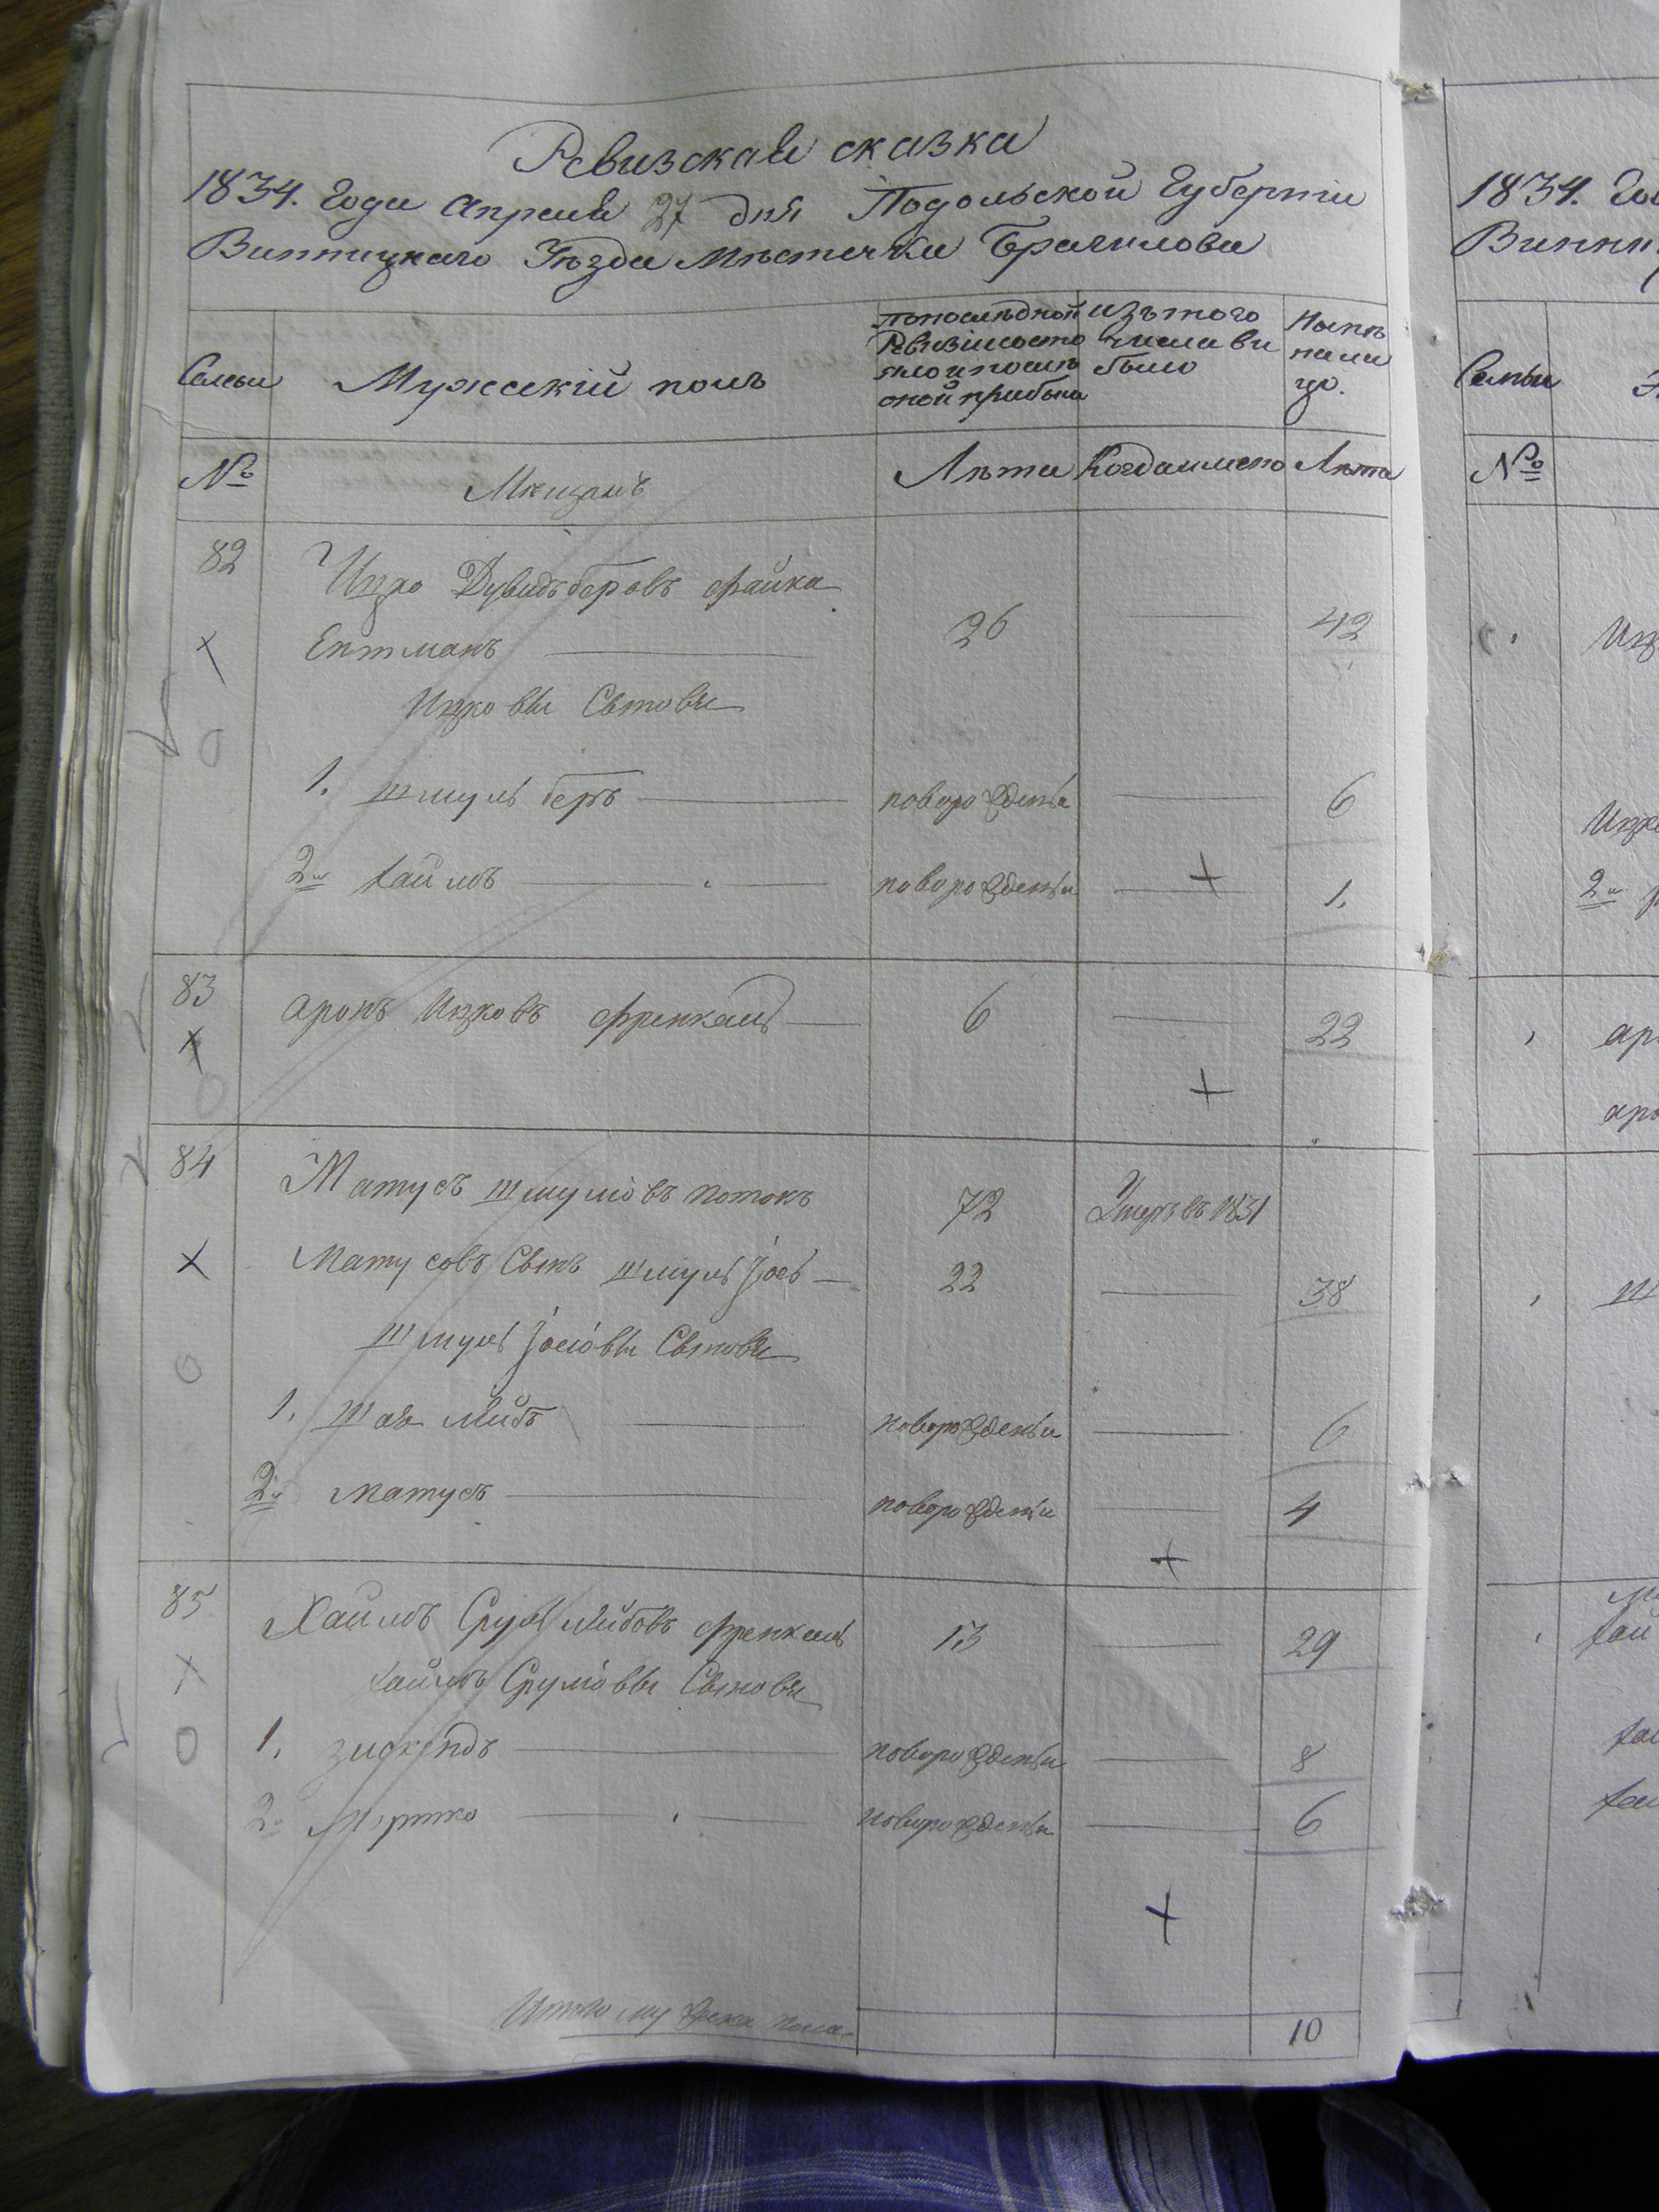 Ревизская сказка
1834. Года Апреля 27 дня Подольской Губернiи
Винницкаго Уѣзда Мѣстечка Брагилова
Семьи
Мужескiй полъ
По последной Ревизiи состояло и после оной прибыло
изъ того числа выбыло
Нынѣ на лицо.
№
Мещанъ
Лѣта
Когда имено
Лѣта
82
Ицко Дувидъ беровъ файка
26
42
Ентманъ
Ицковы Сыновья
1. шмуль беръ новорожденъи 6
2й хаймъ новорожденъи 1.
83 аронъ Ицковъ френкель 6 22
84 Матусъ шмулiовъ потокъ 72 Умеръ въ 1831
Матусовъ Сынъ шмуль Iось 22 38
шмуль Iосiовы Сыновья
1. шая лейбъ новорожденъи 6
2й матусъ новорожденъи 4
85 Хаимъ Сруль лейбовъ френкель 13 29
хаимъ Срулiовы Сыновья
1. зискиндъ новорожденъи 8
2й Мортко новорожденъи 6
Итого мужеска пола
10
1834. Го
Винни
Семьи
№
Ицк
Ицко
2й
ар
аро
ш
хай